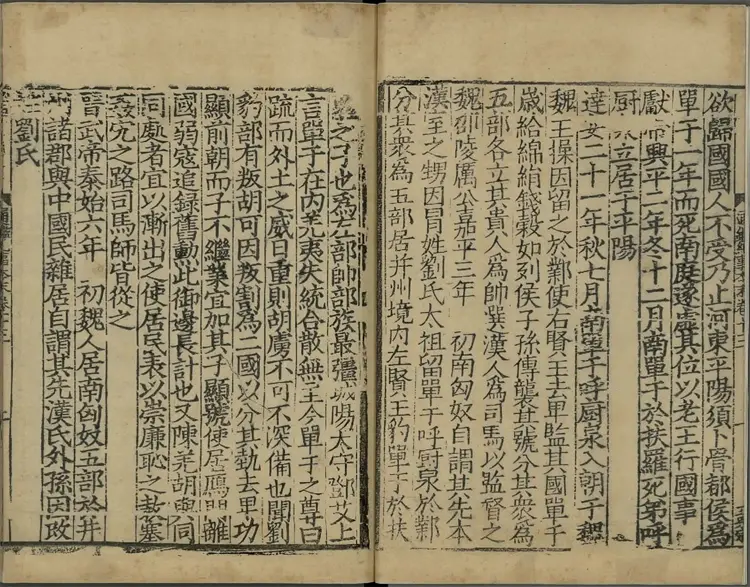 欲歸國國人不受乃止河東平陽須卜骨都侯為
單于一年而死南庭遂虛其位以老王行國事
獻帝興平二年冬十二月南單于於扶羅死弟呼
厨立居于平陽
達安二十一年秋七月南單于呼厨泉入朝于魏
魏王操因留之於鄴使右賢王去卑監其國單于
歲給綿絹錢穀如列侯子孫傳襲其號分其衆為
五部各立其貴人為帥選漢人為司馬以監督之
魏邵陵厲公嘉平三年 初南匈奴自謂其先本
漢室之甥因冒姓劉氏太祖留單于呼厨泉於鄴
分其衆為五部居并州境内左賢王豹單于於扶
之子也為左部帥部族最彊城陽太守鄧艾上
言單于在内羌夷失統合散無主今單于之尊日
疏而外土之威日重則胡虜不可不深備也聞劉
豹部有叛胡可因叛割為二國以分其埶去卑功
顯前朝而子不繼業宜加其子顯號使居鴈門離
國弱寇追録舊勳此御邊長計也又陳羌胡與同
同處者宜以漸出之使居民表以崇廉恥之教塞
姦宄之路司馬師皆從之
晉武帝泰始六年 初魏人居南匈奴五部於并
州諸郡與中國民雜居自謂其先漢氏外孫因改
姓劉氏